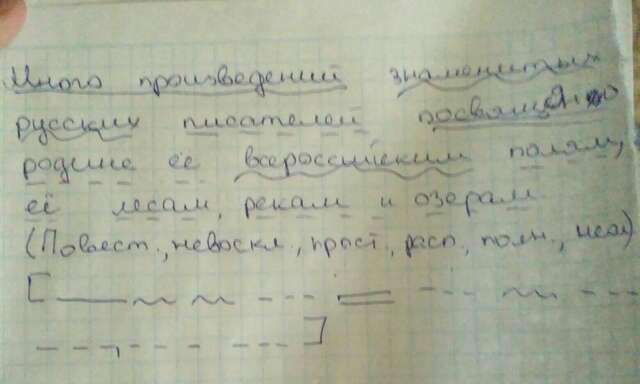 Много произведений знаменитых
русских писателей посвящено
родине её всероссийским полям,
её лесам, рекам и озёрам
(Повест., невоскл., прост., расп., полн., неосл)